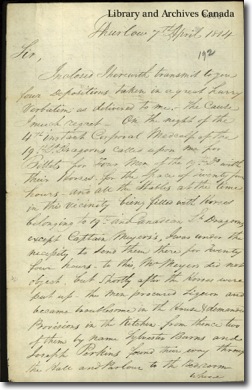 Library and Archives Canada
Thurlow 7th April 1814
Sir,
Inclosed I herewith transmit to you
four depositions taken in a great hurry
Verbatim as delivered to me. The Cause
much regret. On the night of the
4th instant Corporal of the
19th Dragoons called upon me for
Billets for Men of the 19th with
their Horses for the space of twenty four
hours and all the Stables at the time
in this Vicinity being filled with Horses
belonging to 19th and Canadian Lt Dragoons,
except Captain Meyers's, I was under the
necessity to send them there for twenty
four hours. to this, Mr Meyers did not
object. but shortly after the Horses were
put up. the men procured liquor and
became troublesome in the House & demanded
Provisions in the Kitchen from thence two
of them by name Sylvester Barns and
Joseph Perkins found their way through
the Hall and Parlour to the Barroom
where